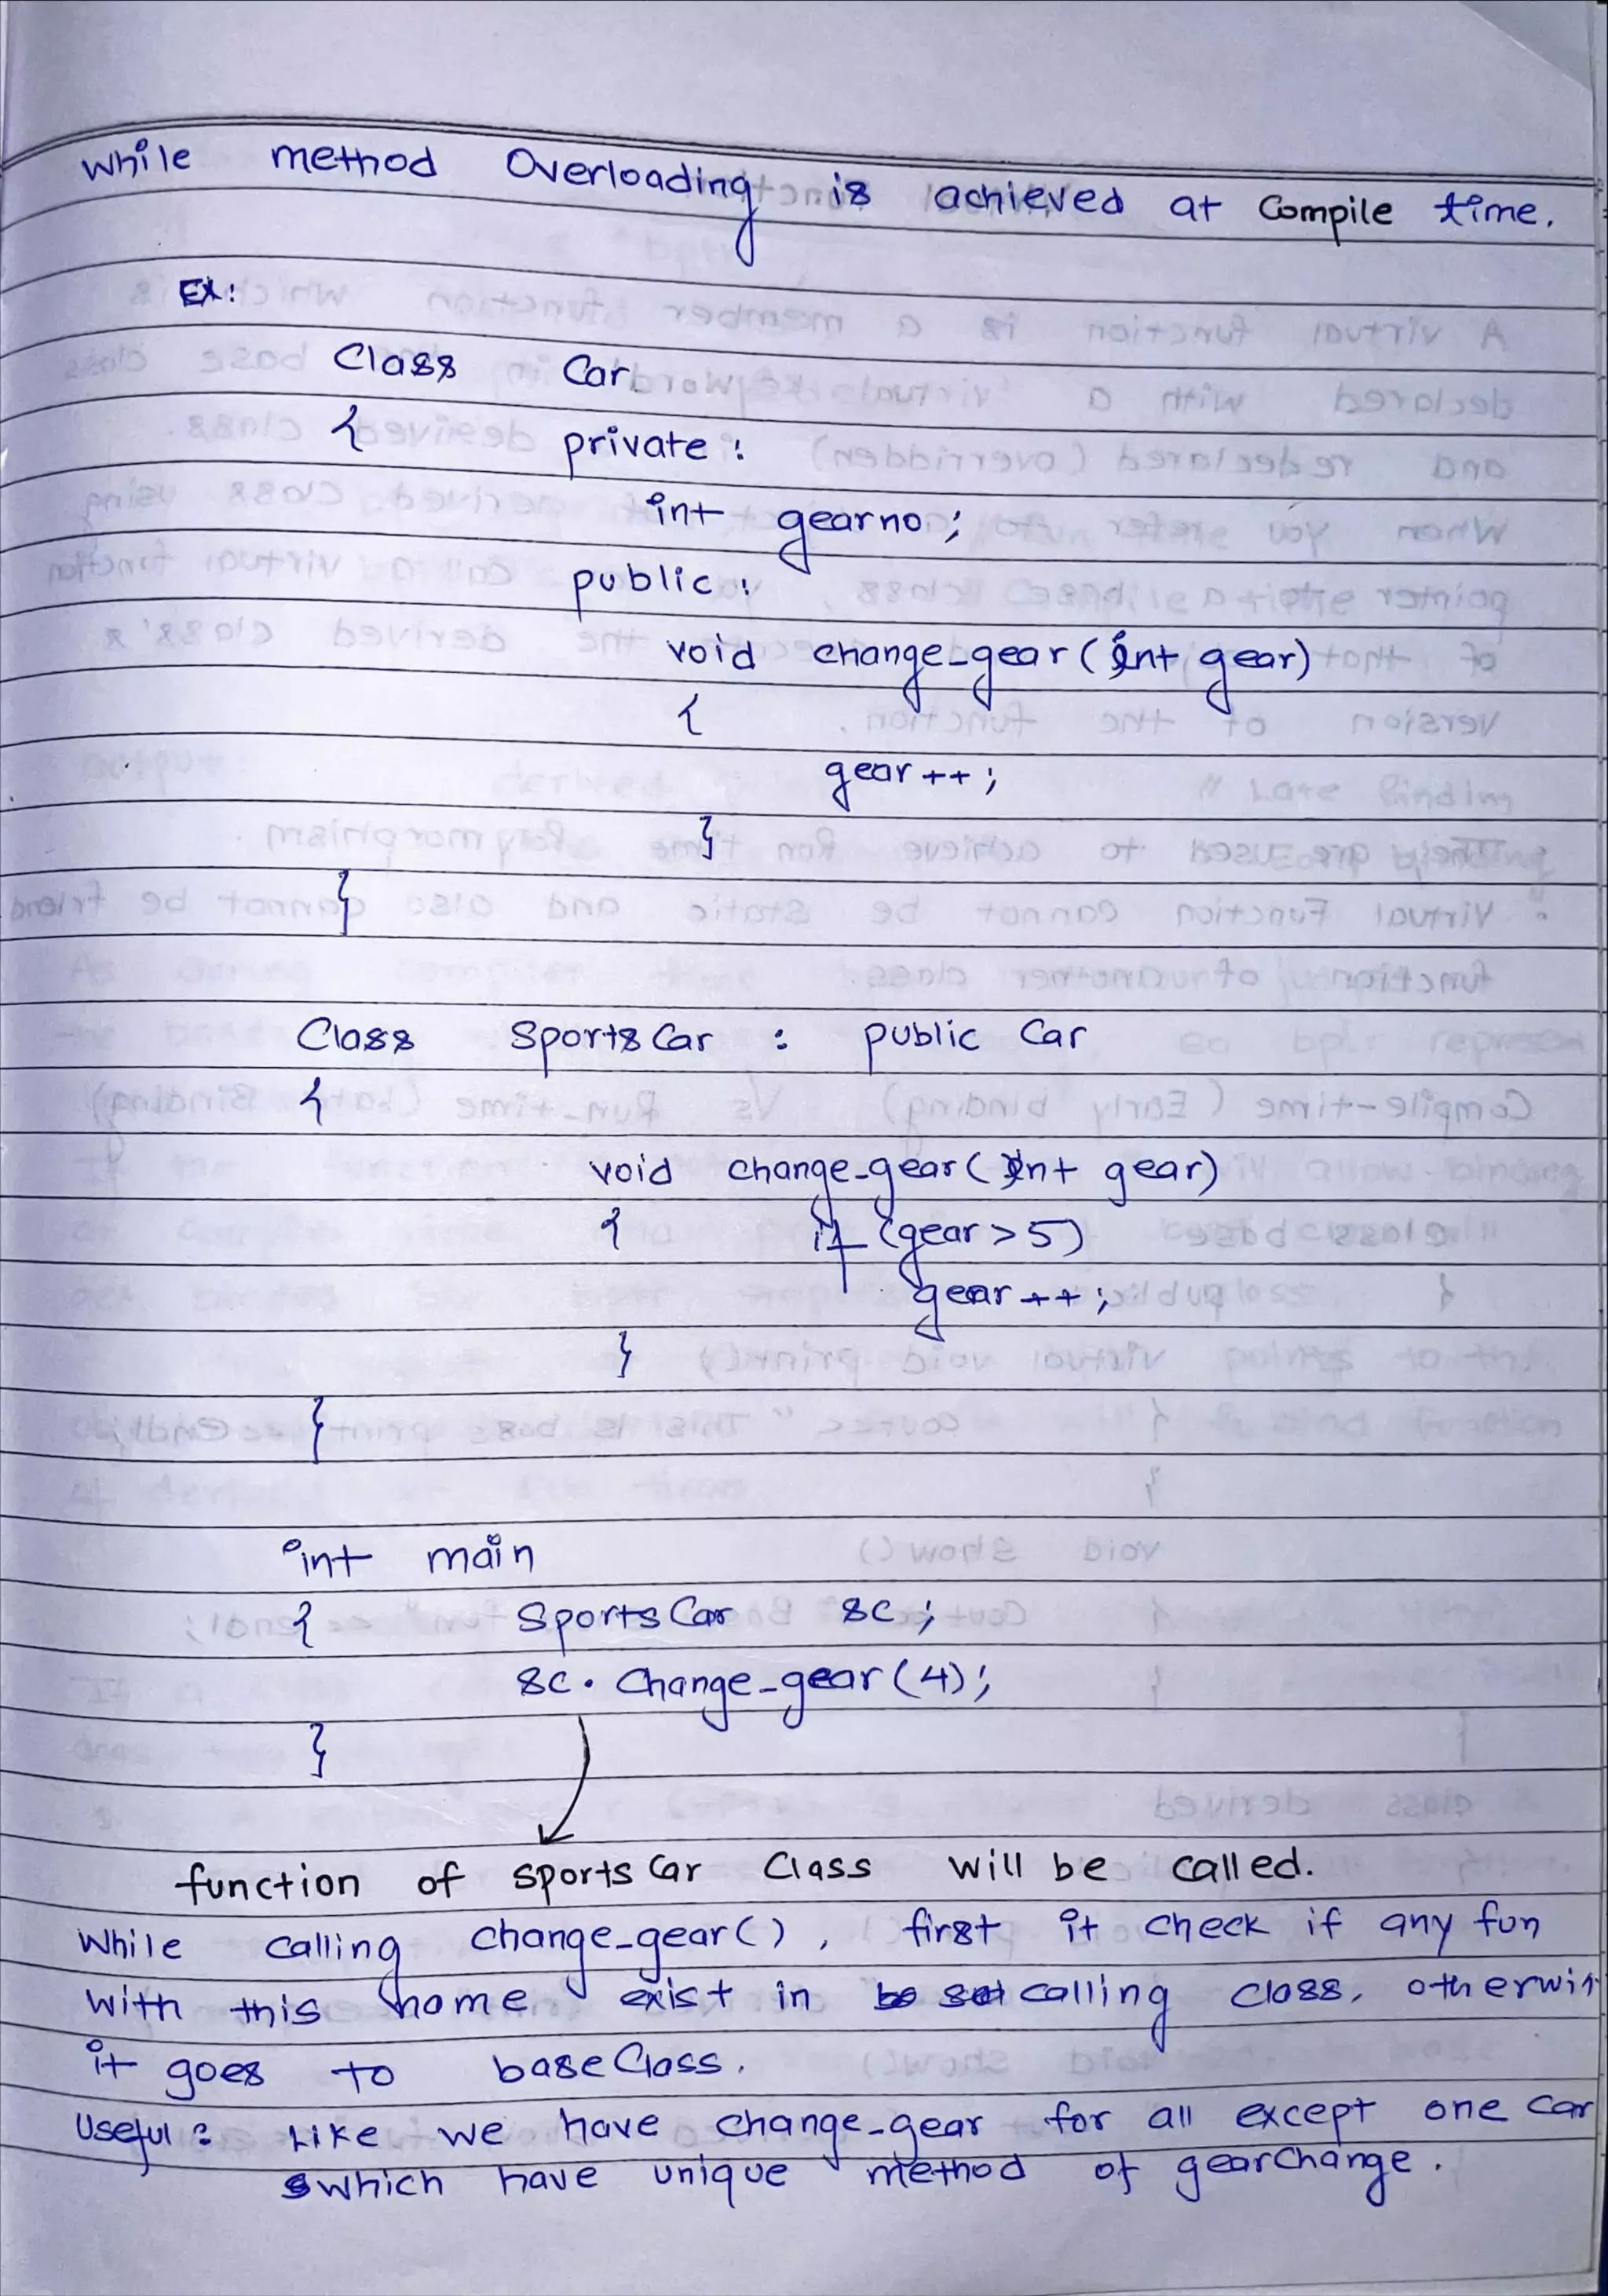 while method Overloading is achieved at Compile time.
Ex:
Class Car
{ private:
int gearno;
public:
void change_gear(int gear)
{
gear++;
}
}
Class SportsCar : public Car
{
void change_gear(int gear)
{ if (gear>5)
gear++;
}
}
int main
{ SportsCar sc;
sc. Change_gear(4);
}
function of sports Car Class will be called.
While calling change_gear(), first it check if any fun
with this name exist in calling class, otherwis
it goes to baseClass.
Useful: Like we have change_gear for all except one car
which have unique method of gearChange.